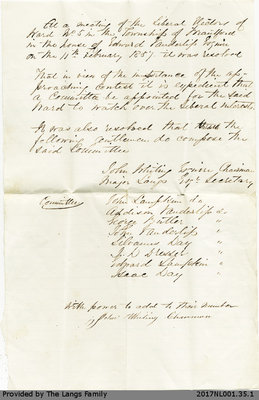 At a meeting of the Liberal Electors of
Ward No 5 in the Township of Brantford
in the house of Edward Vanderlip Esquire
on the 11th February 1857 it was resolved
That in view of the importance of the ap-
proaching contest it is expedient that
a Committee be appointed for the said
Ward to watch over the Liberal Interests
It was also resolved that the
following gentlemen do compose the
said Committee
John Whiting Esquire Chairman
Major Langs Esqr. Secretary
Committee John Lampkin do
Addison Vanderlip do
George Butler "
John Vanderlip "
Silvanus Day "
Edward Lampkin "
Isaac Day "
With power to add to their number
John Whiting Chairman
Provided by The Langs Family
2017NL001.35.1